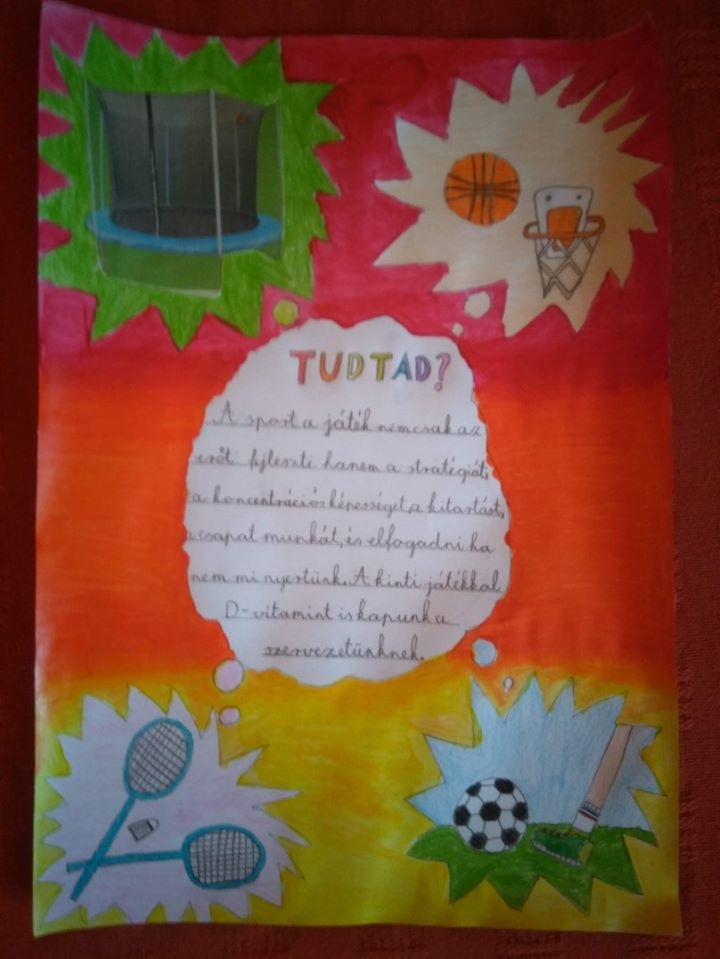 TUDTAD?
A sport a játék nemcsak az
erőt fejleszti hanem a stratégiát,
a koncentrációs képességet, a kitartást,
a csapat munkát, és elfogadni ha
nem mi nyertünk. A kinti játékkal
D-vitamint is kapunk a
szervezetünknek.